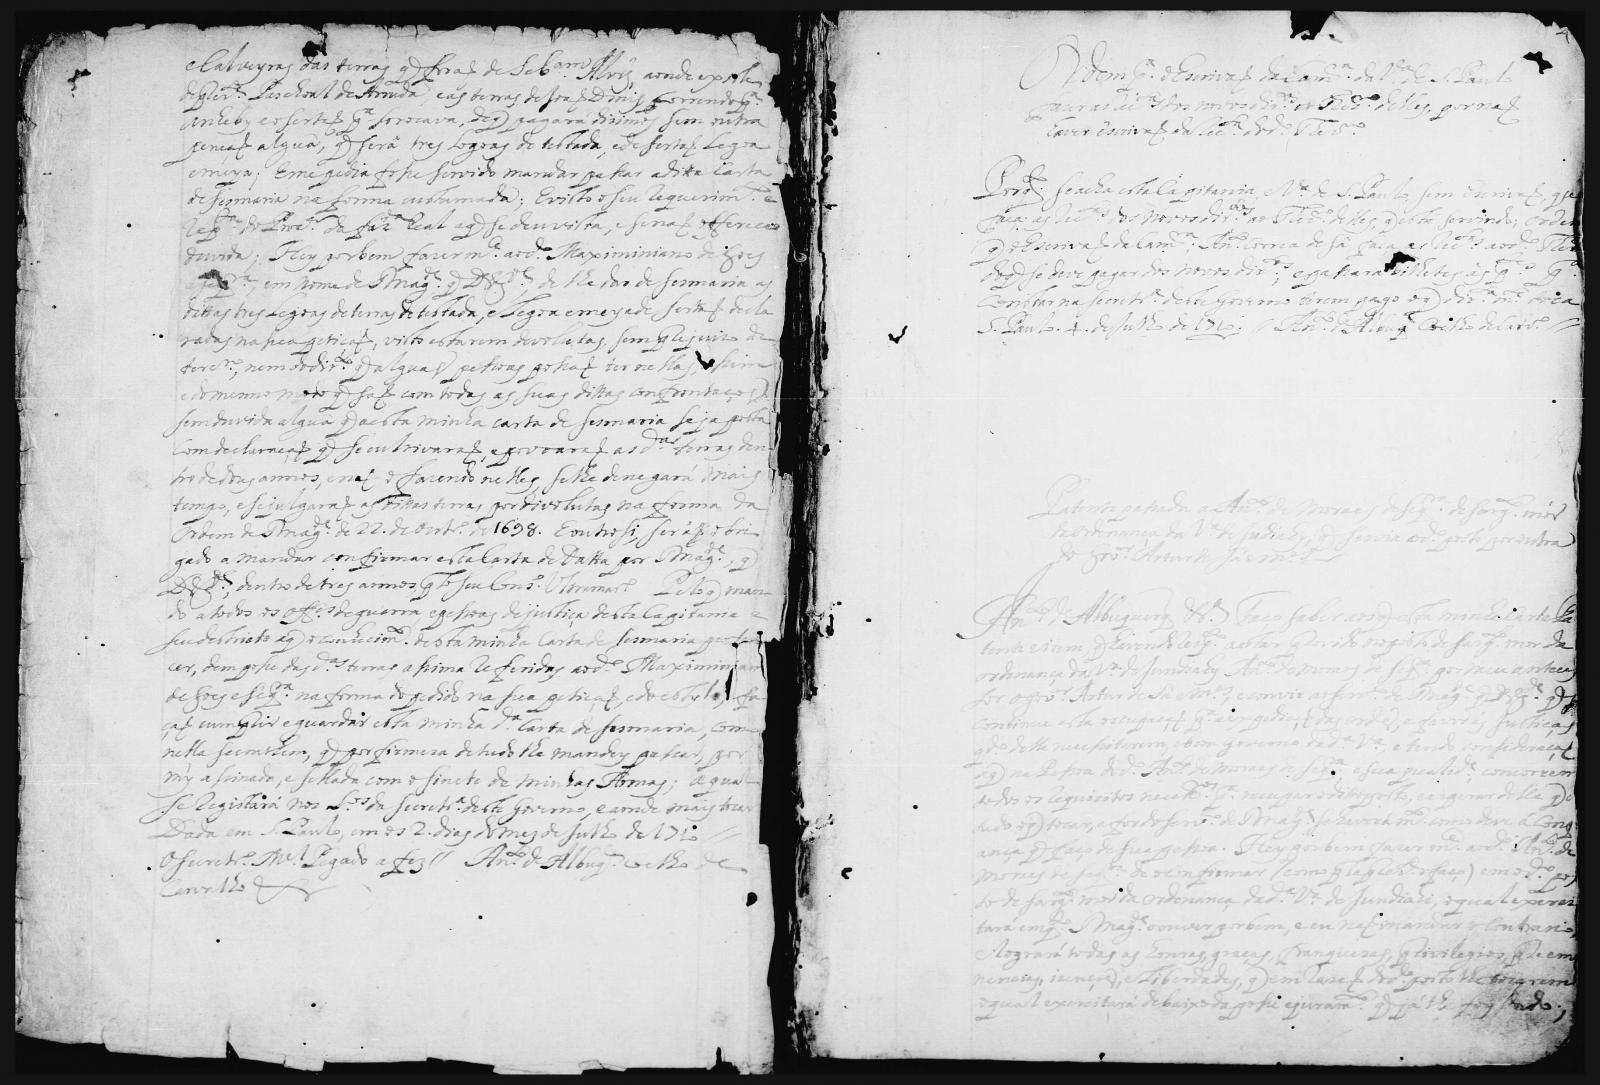 e Calveyras das terras q̃ foraõ de Seb.am Alvȝ, aonde
o P.e Paschoal de Arruda, e as terras de João Diniz, correndo p.a
anheby e o sertaõ p.a sorocava, de q̃ pagará dizimos sem outra
pençaõ algũa, q̃ será tres legoas de testada, e de sertaõ Legoa
e meya; E me pedia fosse servido mandar passar a ditta Carta
de sesmaria na forma custumada; E visto o seu requerim.to e
resp.ta do Proc.or da faz.a Real a q̃ se deu vista, e se naõ offerecer
duvida; Hey por bem fazer m.ce ao d.o Maximiniano de Goes
e seq.ra, em nome de S Mag.de q̃ D.s g.de de lhe dar de sesmaria as
dittas tres Legoas de terras de testada, e Legoa e meya de sertaõ decla
radas na sua petiçaõ, visto estarem devolutas, sem prejuizo de
terc.ro, nem do dir.to q̃ alguãs pessoas possaõ ter nellas, assim
e do mesmo modo q̃ saõ com todas as suas dittas confrontaçoẽs
sem duvida algũa q̃ a esta minha carta de sesmaria seja posta
Com declaraçaõ q̃ se cultivaraõ, e povoaraõ as d.as terras den
tro de dous annos, e naõ o fazendo nelles, se lhe denegará mais
tempo, e se julgaraõ as dittas terras por divolutas na forma da
Ordem de S Mag.de de 22. de Outr.o de 1698. E outro si, será obri
gado a mandar confirmar esta Carta de Datta por S Mag.de, q̃
D.s g.de, dentro de tres annos p.lo seu Cons.o Ultramar.o Pelo q̃ man
do a todos os off.es de guerra e pessoas de justiça desta Capitania e
seu destricto a q̃ o conhecim.to desta minha Carta de sesmaria perten
cer, dem posse das d.as terras asima referidas ao d.o Maximinian
de Goes e seq.ra na forma do pedido na sua petiçaõ, e do estylo, e fa
çaõ cumprir e guardar esta minha d.a Carta de sesmaria, como
nella se conthem, q̃ por firmeza de tudo lhe mandey passar, por
my assinada, e sellada com o sinete de minhas Armas; a qual
se Registará nos L.os da secretr.a deste Governo, e aonde mais tocar
Dada em S. Paulo, em os 2. dias do mes de Julho de 1710
O Secretr.o M.el Pegado a fez // An.to de Albuq.e Coelho de
Carvalho
Ordem p.a o Escrivaõ da Cam.ra da V.a de S. Paulo
fazer as rec.tas dos novos dir.tos ao Thez.ro delles, por naõ
haver Escrivaõ da rec.ta do d.o Thez.ro
Porq.to se acha esta Capitania e V.a de S. Paulo, sem Escrivaõ, q̃ se
faça as rec.tas dos Novos dir.tos ao Thez.ro delles, q̃ está servindo; Orden
q̃ o Escrivaõ da Cam.ra, An.to Correa de Sá faça as rec.tas ao d.o Thez
do q̃ se deve pagar dos novos dir.tos, e passará bilhetes às p.tes p.a
constar na secretr.a deste Governo terem pago os q̃
S. Paulo. 4. de Julho de 1710. // An.to de Albuq.e Coelho de Carv.o
Patente passada a An.to de Moraes de seq.ra de sarg.to mór
da ordenança da V.a de Jundiahy, q̃ servia o d.o posto por outra
do Gov.or Artur de Sá e Mn.es
An.to de Albuquerq̃ &.a Faço saber aos q̃ esta minha Carta Pa
tente virem, q̃ havendo resp.to a estar provido no posto de sarg.to mor da
ordenança da V.a de Jundiahy An.to de Moraes de seq.ra por meu anteces
sor o Gov.or Artur de Sá e Mn.es, e convir ao serv.o de S Mag.de q̃ D.s g.de q̃
continue esta occupaçaõ p.a a expediçaõ das ordẽs, e favores Justiças
q.do delle necessitarem, e bom Governo da d.a V.a, e tendo consideraçaõ
a q̃ na pessoa do d.o An.to de Moraes de seq.ra, e sua qualid.e concorrem
todos os requisitos necess.os p.a occupar o d.o posto,
tudo o q̃ tocar, e for do serv.o de S Mag.de se haverá m.to como deve á confi
ança q̃ faço de sua pessoa. Hey por bem fazer m.ce ao d.o An.to de
Moraes de seq.ra de o confirmar (como pla prez.te o faço) em o d.o pos
to de sarg.to mor da ordenança da d.a V.a de Jundiahi, o qual exerci
tará emq.to S Mag.de o ouver por bem, e eu naõ mandar o contrario,
e logrará todas as honras, graças, franquezas, privilegios, pree mi
nencias, izençoẽs, e Liberdades, q̃ em razaõ do d.o posto lhe tocarem
o qual exercitará debaixo da posse e juram.to q̃ já lhe foy dado;